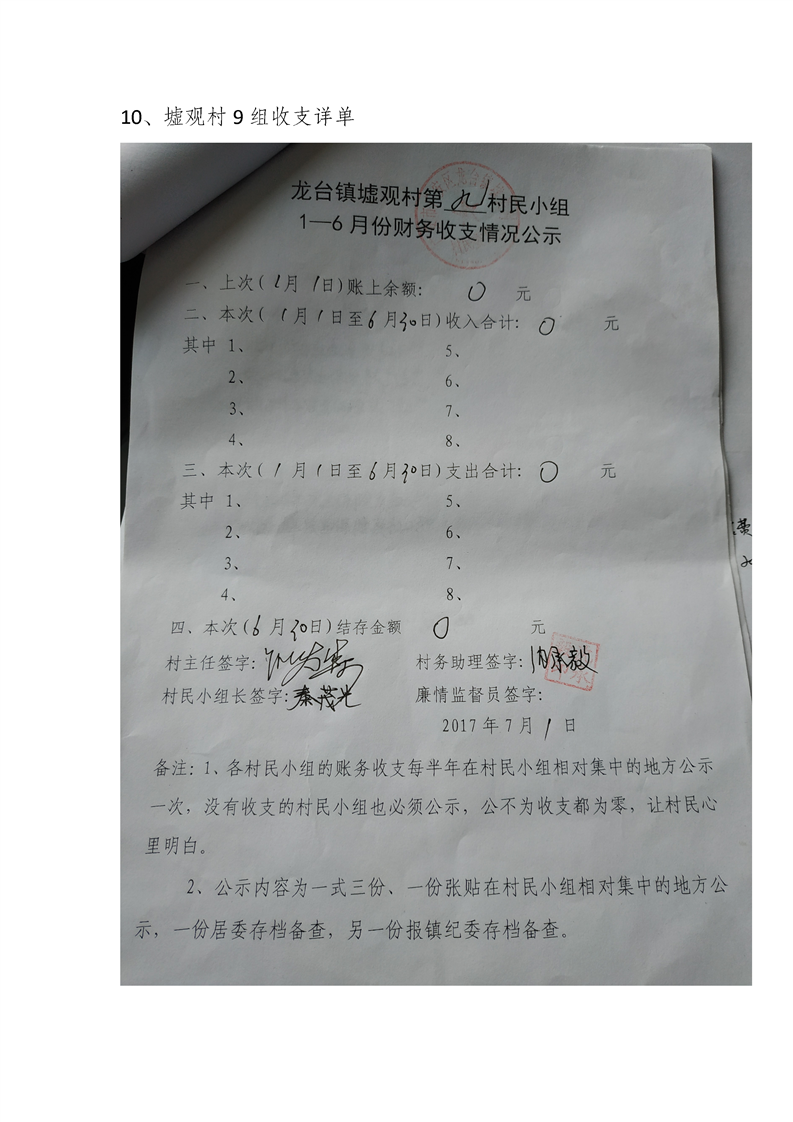 10、墟观村 9 组收支详单
龙台镇墟观村第九村民小组
1—6 月份财务收支情况公示
一、上次(1月1日)账上余额: 0 元
二、本次(1月1日至6月30日)收入合计: 0 元
其中 1、 5、
2、 6、
3、 7、
4、 8、
三、本次(1月1日至6月30日)支出合计: 0 元
其中 1、 5、
2、 6、
3、 7、
4、 8、
四、本次(6月30日)结存金额 0 元
村主任签字: 村务助理签字:
村民小组长签字:秦茂光 廉情监督员签字:
2017 年 7 月 1 日
备注:1、各村民小组的账务收支每半年在村民小组相对集中的地方公示
一次，没有收支的村民小组也必须公示，公不为收支都为零，让村民心
里明白。
2、公示内容为一式三份、一份张贴在村民小组相对集中的地方公
示，一份居委存档备查，另一份报镇纪委存档备查。